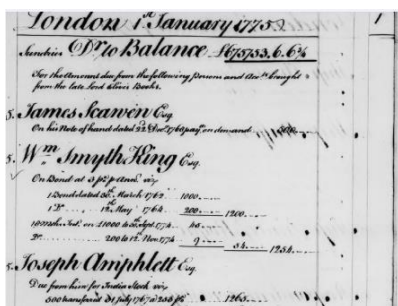 London 1st January 1775 1
Sundries Dr. to Balance £675753.6.6¾
For the Amount due from the following Persons and Accts brought
from the late Lord Clive's Books.
5. James Scawen Esq.
On his Note of hand dated 22d Decr. 1760 pay.e on demand 500
5. Wm Smyth King Esq.
On Bond at 3 p% p Annd. viz
1 Bond dated 30th March 1762 1000
1 Do. 12th May 1764 200 1200
on £1000 to 30 Sept. 1774 45
Do. 200 to 12 Nov. 1774 9 54 1254
5. Joseph Amphlett Esq.
Due from him for India Stock viz
500 transfered 31 July 1767 a 253 p% 1265